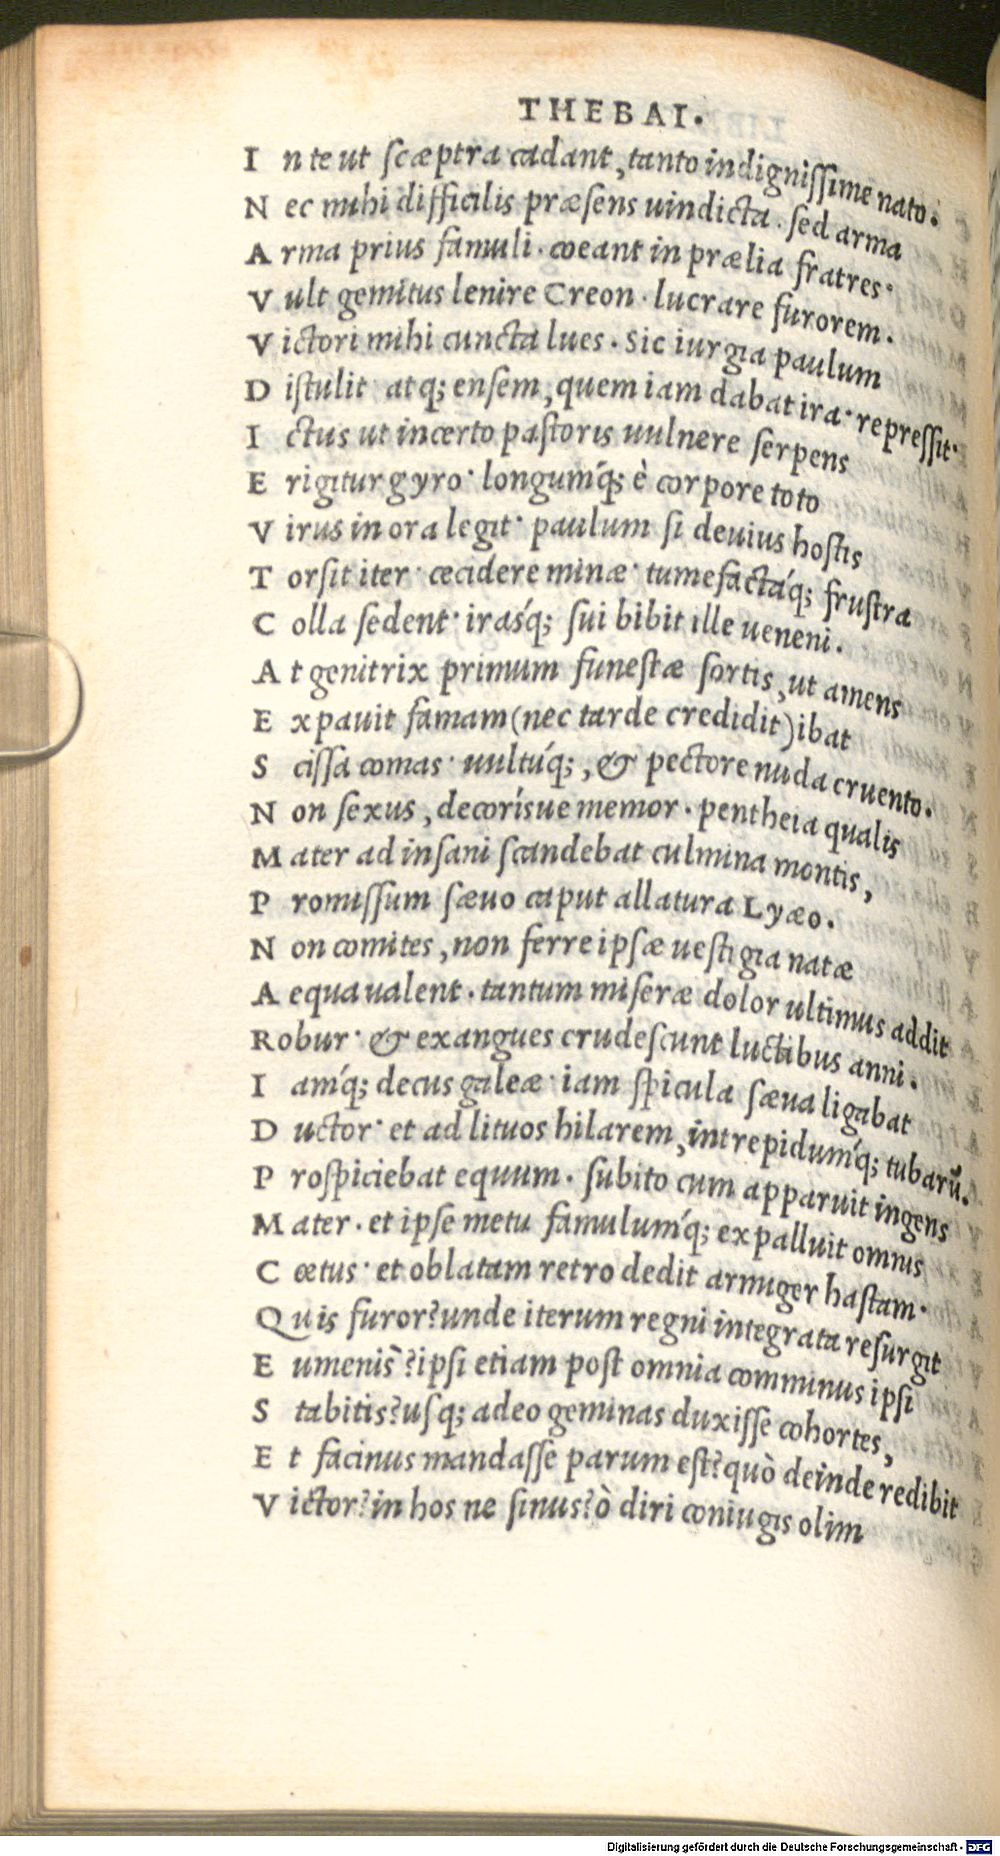 THEBAI.
I n te ut scæptra cadant, tanto indignissime nato.
N ec mihi difficilis præsens uindicta. sed arma
A rma prius famuli. coeant in prælia fratres.
V ult gemitus lenire Creon. lucrare furorem.
V ictori mihi cuncta lues. Sic iurgia paulum
D istulit atq; ensem, quem iam dabat ira. repressit.
I ctus ut incerto pastoris uulnere serpens
E rigitur gyro. longumq́; è corpore toto
V irus in ora legit. paulum si deuius hostis
T orsit iter. cecidere minæ. tumefactáq; frustra
C olla sedent. irasq́; sui bibit ille ueneni.
A t genitrix primum funestæ sortis, ut amens
E xpauit famam (nec tarde credidit) ibat
S cissa comas. uultúq;, & pectore nuda cruento.
N on sexus, decorísue memor. pentheia qualis
M ater ad insani scandebat culmina montis,
P romissum sæuo caput allatura Lyæo.
N on comites, non ferre ipsæ uestigia natæ
A equa ualent. tantum miseræ dolor ultimus addit
Robur. & exangues crudescunt luctibus anni.
I amq́; decus galeæ. iam spicula sæua ligabat
D uctor. et ad lituos hilarem, intrepidumq́; tubarũ.
P rospiciebat equum. subito cum apparuit ingens
M ater. et ipse metu famulumq́; expalluit omnis
C oetus. et oblatam retro dedit armiger hastam.
Quis furor? unde iterum regni integrata resurgit
E umenis? ipsi etiam post omnia comminus ipsi
S tabitis? usq; adeo geminas duxisse cohortes,
E t facinus mandasse parum est? quò deinde redibit
V ictor? in hos ne sinus? ò diri coniugis olim
Digitalisierung gefördert durch die Deutsche Forschungsgemeinschaft - DFG